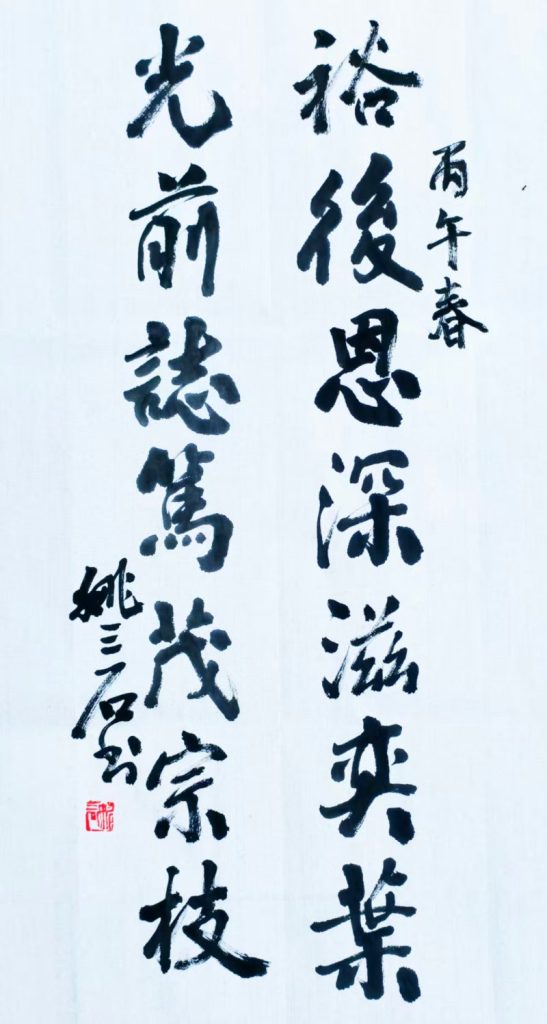 丙午春
裕後恩深滋奕葉
光前誌篤茂宗枝
姚三石书